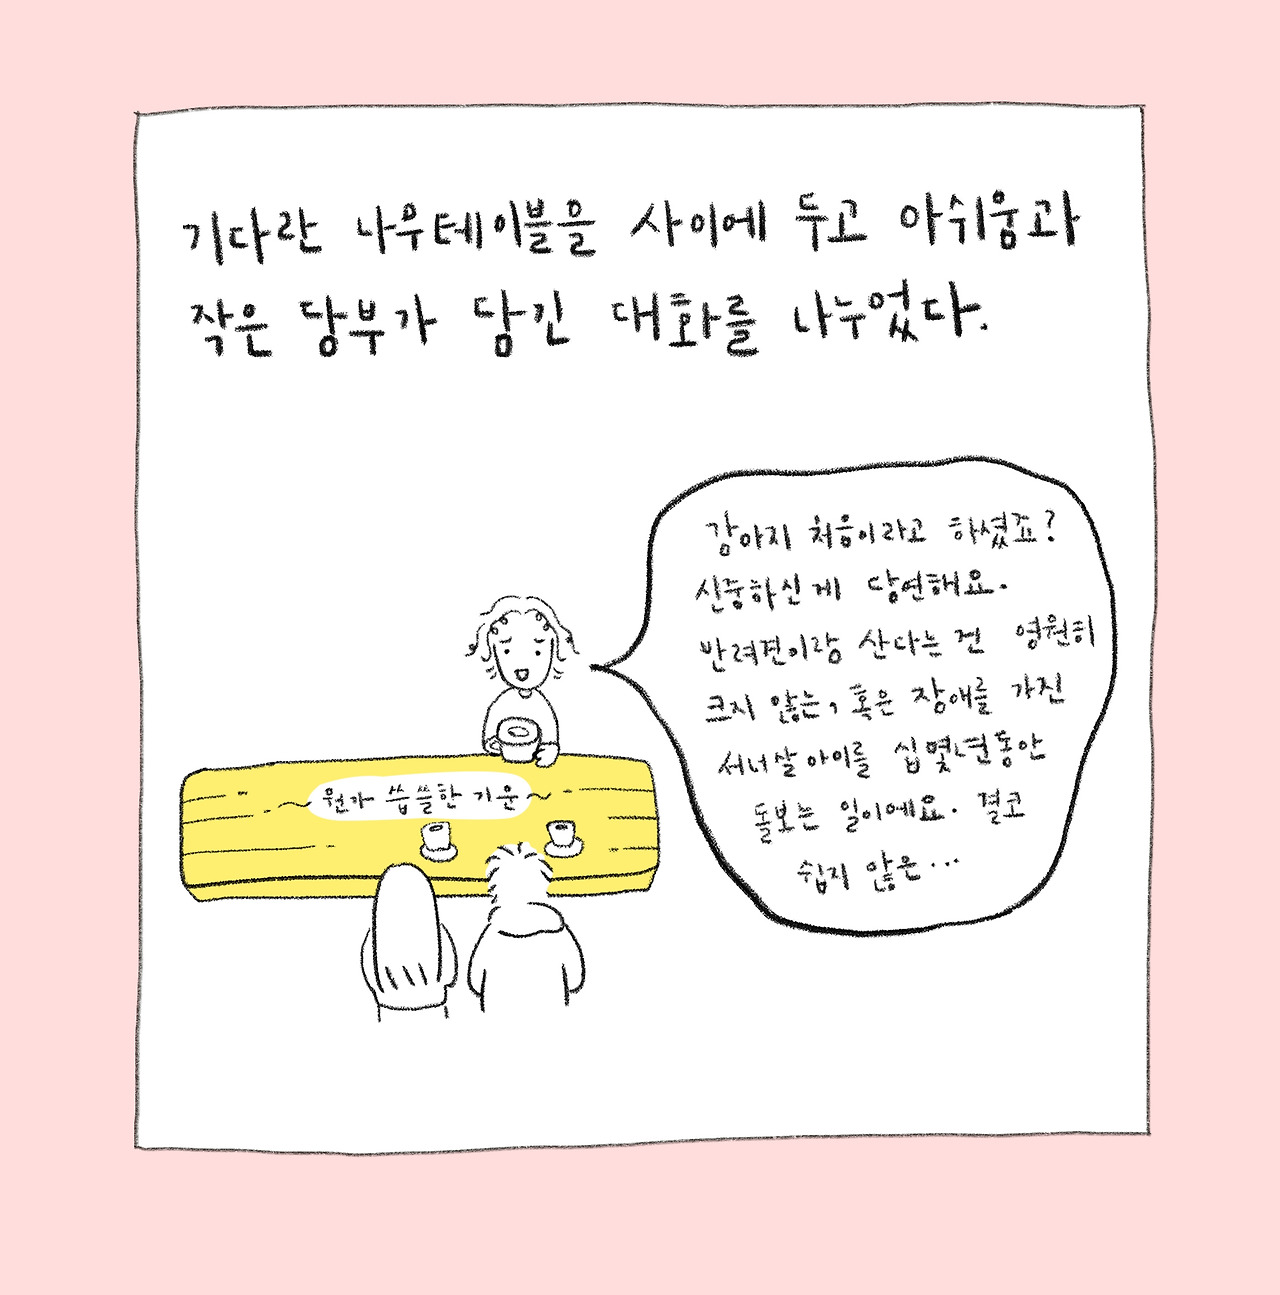 기다란 나우테이블을 사이에 두고 아쉬움과
작은 당부가 담긴 대화를 나누었다.
강아지 처음이라고 하셨죠?
신중하신게 당연해요.
반려견이랑 산다는 건 영원히
크지 않는, 혹은 장애를 가진
서너살 아이를 십몇년동안
돌보는 일이에요. 결코
쉽지 않은...
뭔가 씁쓸한 기운